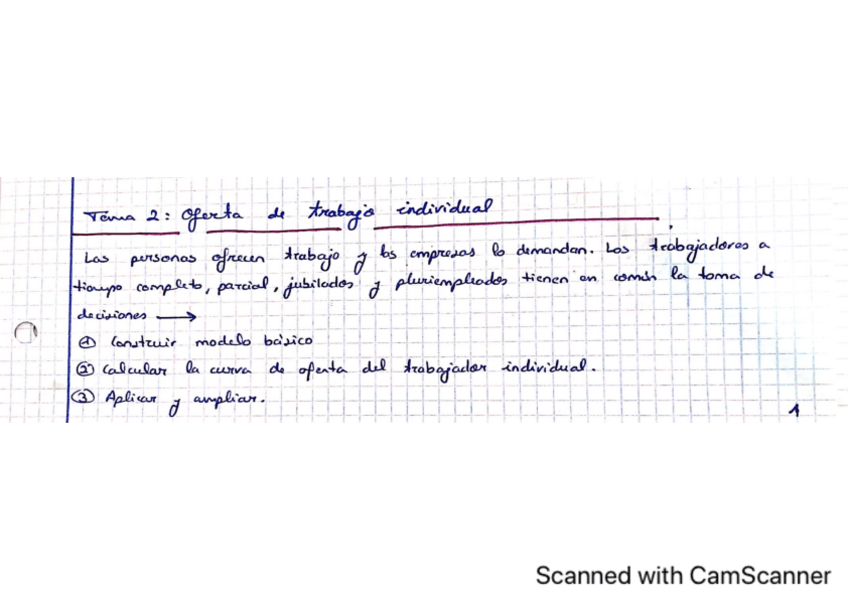 Tema 2: Oferta de trabajo individual
Las personas ofrecen trabajo y las empresas lo demandan. Los trabajadores a
tiempo completo, parcial, jubilados y pluriempleados tienen en común la toma de
decisiones →
① Construir modelo básico
② Calcular la curva de oferta del trabajador individual.
③ Aplicar y ampliar.
1
Scanned with CamScanner